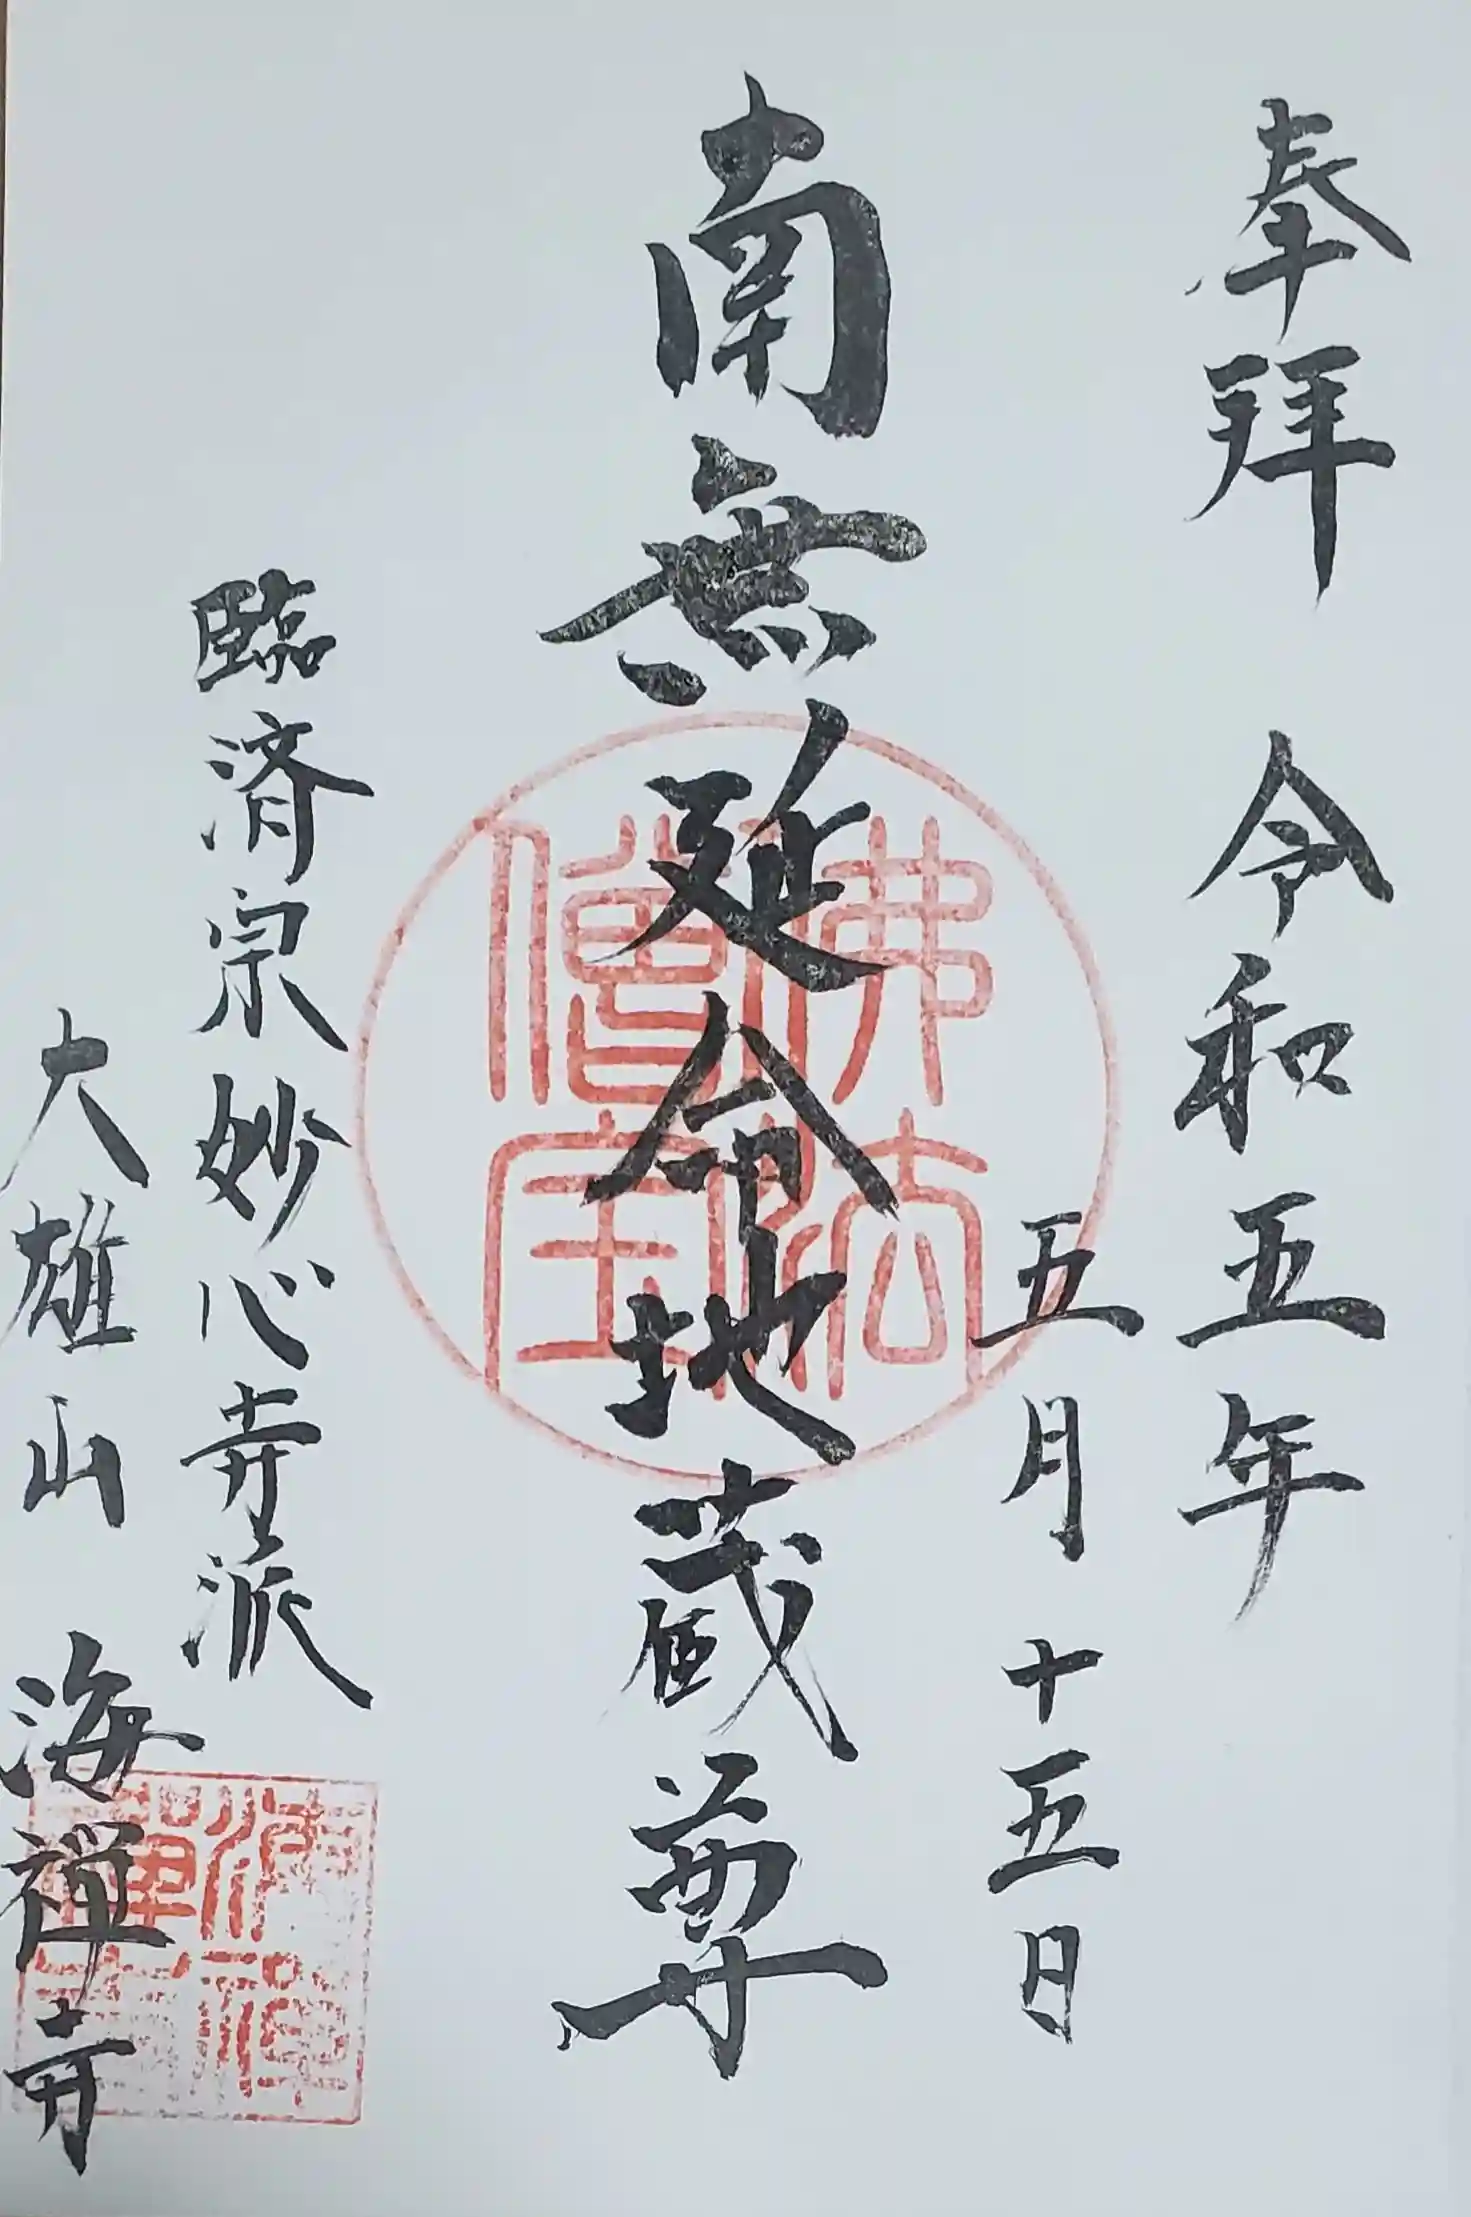 奉拝 令和五年
五月十五日
南無延命地蔵尊
臨済宗妙心寺派
大雄山 海禅寺
佛法僧宝